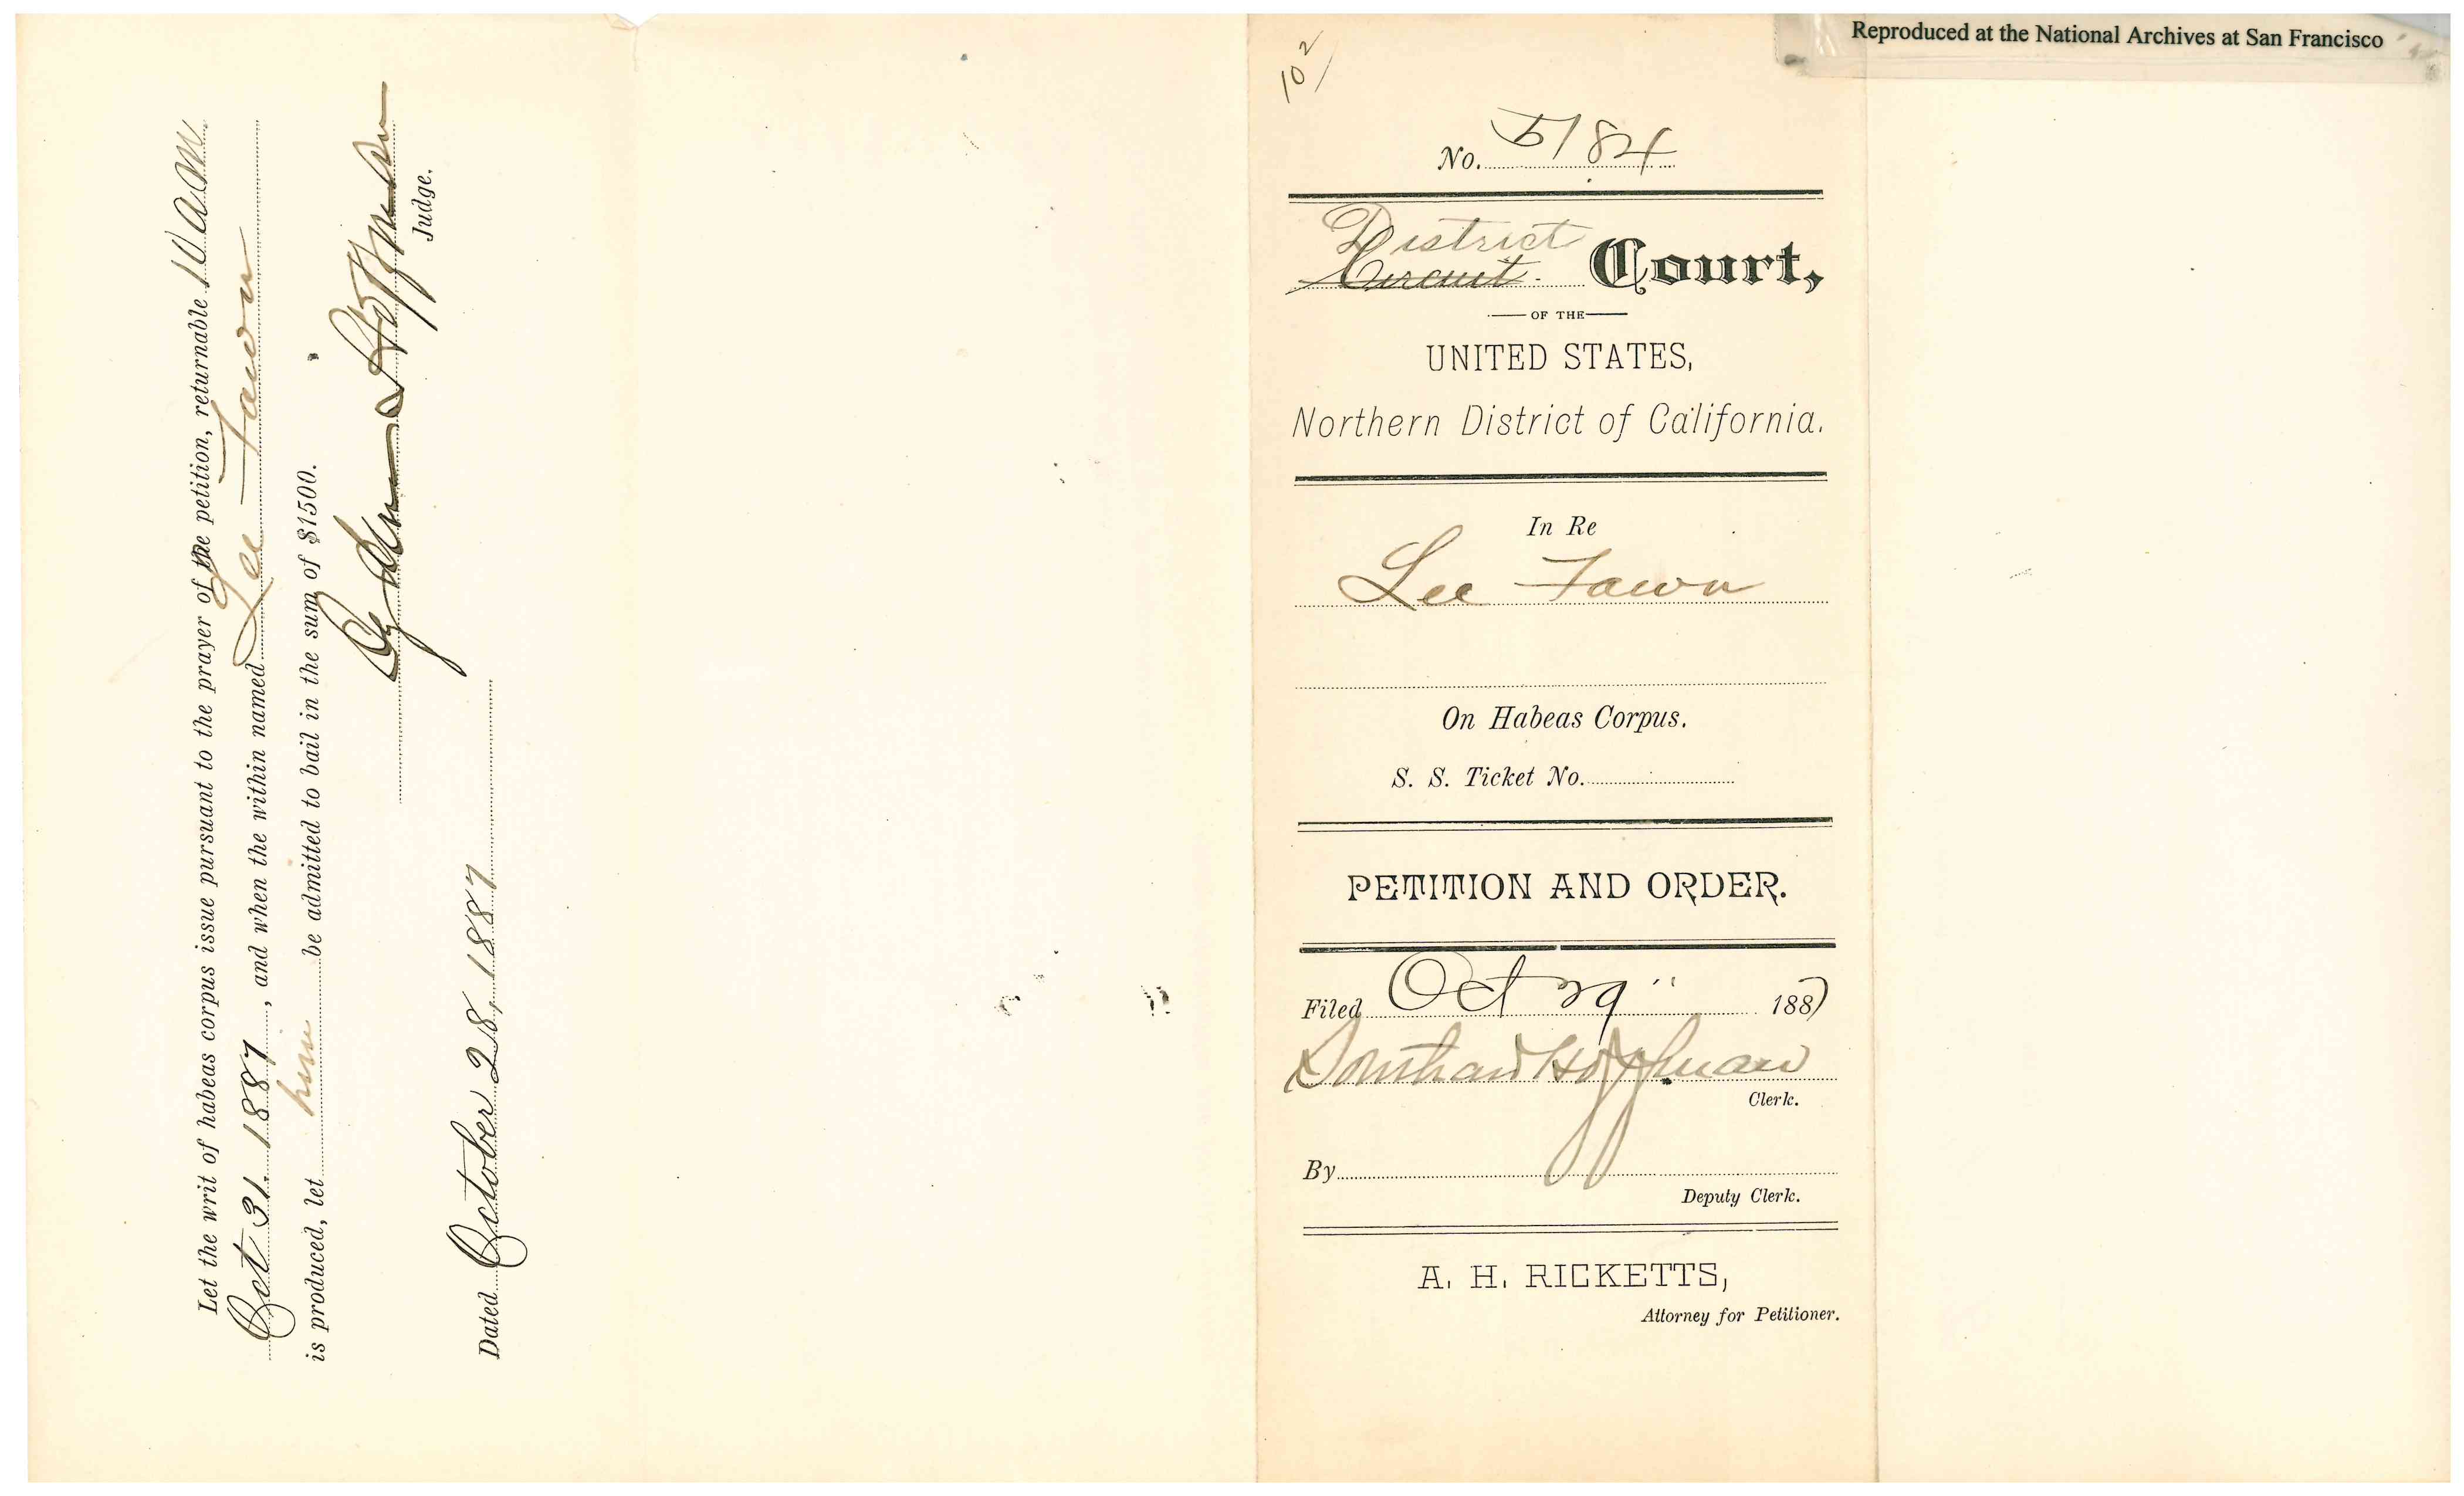 Let the writ of habeas corpus issue pursuant to the prayer of the petition, returnable 10 A M.
Oct 31. 1887, and when the within named Lee Fawn
is produced, let him be admitted to bail in the sum of $1500.
Ogden Hoffman
Judge.
Dated October 28, 1887
Reproduced at the National Archives at San Francisco
102
No. 5184
District
Circuit Court,
OF THE
UNITED STATES,
Northern District of California.
In Re
Lee Fawn
On Habeas Corpus.
S. S. Ticket No.
PETITION AND ORDER.
Filed Oct 29" 1887
Southard Hoffman
Clerk.
By
Deputy Clerk.
A. H. RICKETTS,
Attorney for Petitioner.